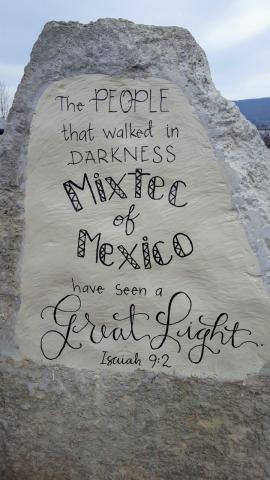 The PEOPLE
that walked in
DARKNESS
Mixtec
of
Mexico
have seen a
Great Light.
Isaiah 9:2